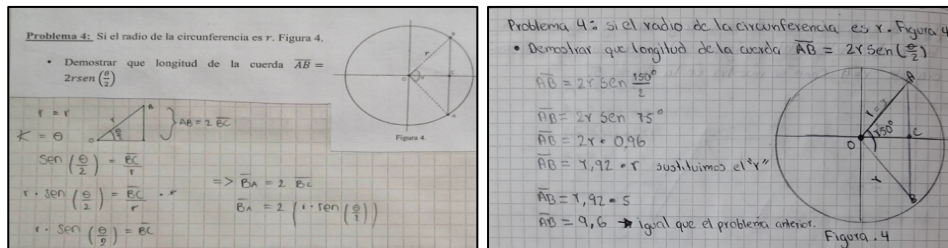 Problema 4: Si el radio de la circunferencia es r. Figura 4.
• Demostrar que longitud de la cuerda AB̅ =
2rsen (θ/2)
r = r
∝ = θ
r
B
O
θ/2
} AB = 2 BC̅
Sen (θ/2) = BC̅/r
r · sen (θ/2) = BC̅/r · r
r · sen (θ/2) = BC̅
=> B̅A̅ = 2 B̅C̅
B̅A̅ = 2 (r · sen (θ/2))
Figura 4.
Problema 4: si el radio de la circunferencia es r. Figura 4
• Demostrar que longitud de la cuerda AB̅ = 2r sen (θ/2)
AB̅ = 2r sen 150°/2
AB̅ = 2r sen 75°
AB̅ = 2r • 0,96
AB̅ = 1,92 • r sustituimos el "r"
AB̅ = 1,92 • 5
AB̅ = 9,6 → igual que el problema anterior.
A
150°
O
C
r
B
Figura. 4